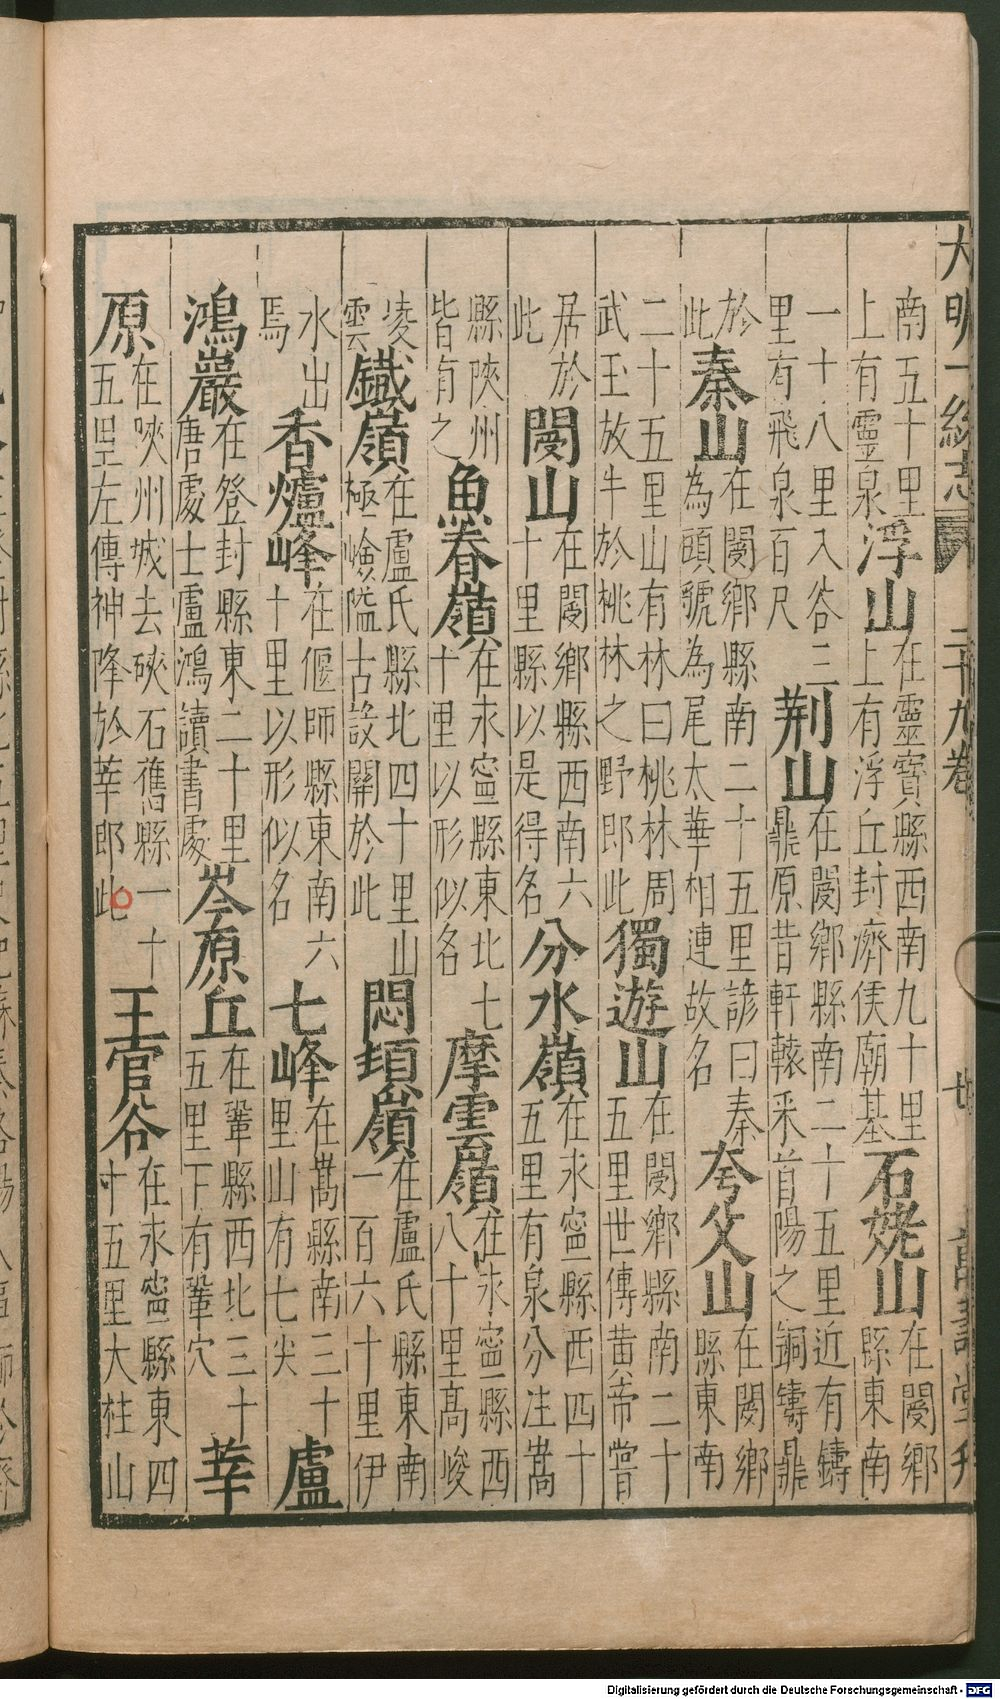 大明一統志 三十九卷 萬壽堂刋
南五十里上有靈泉浮山在靈寶縣西南九十里上有浮丘封濟侯廟基石姥山在閿鄉縣東南
一十八里入谷三里有飛泉百尺荆山在閿鄉縣南二十五里近有鑄鼎原昔軒轅采首陽之銅鑄鼎
於此秦山在閿鄉縣南二十五里諺曰秦為頭號為尾太華相連故名夸父山在閿鄉縣東南
二十五里山有林曰桃林周武王放牛於桃林之野郎此獨遊山在閿鄉縣南二十五里世傳黃帝嘗
居於此閿山在閿鄉縣西南六十里縣以是得名分水嶺在永寧縣西四十五里有泉分注嵩
縣陝州皆有之魚脊嶺在永寧縣東北七十里以形似名摩雲嶺在永寧縣西八十里高峻
凌雲鐵嶺在盧氏縣北四十里山極嶮隘古設關於此悶頓嶺在盧氏縣東南一百六十里伊
水出焉香爐峰在偃師縣東南六十里以形似名七峰在嵩縣南三十里山有七尖盧
鴻巖在登封縣東二十里唐處士盧鴻讀書處岑原丘在鞏縣西北三十五里下有鞏穴莘
原在陝州城去硤石舊縣一十五里左傳神降於莘郎此王官谷在永寧縣東四十五里大柱山
Digitalisierung gefördert durch die Deutsche Forschungsgemeinschaft - DFG